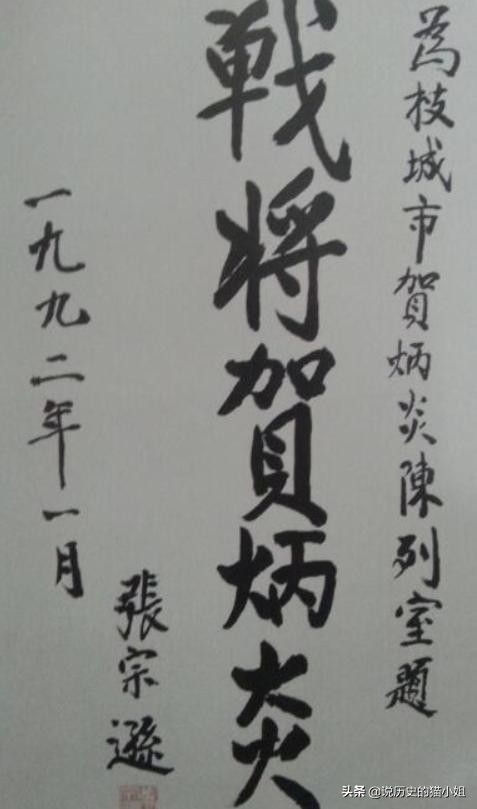 為枝城市賀炳炎陳列室題
戰將賀炳炎
一九九二年一月
張宗遜
头条 @说历史的猫小姐